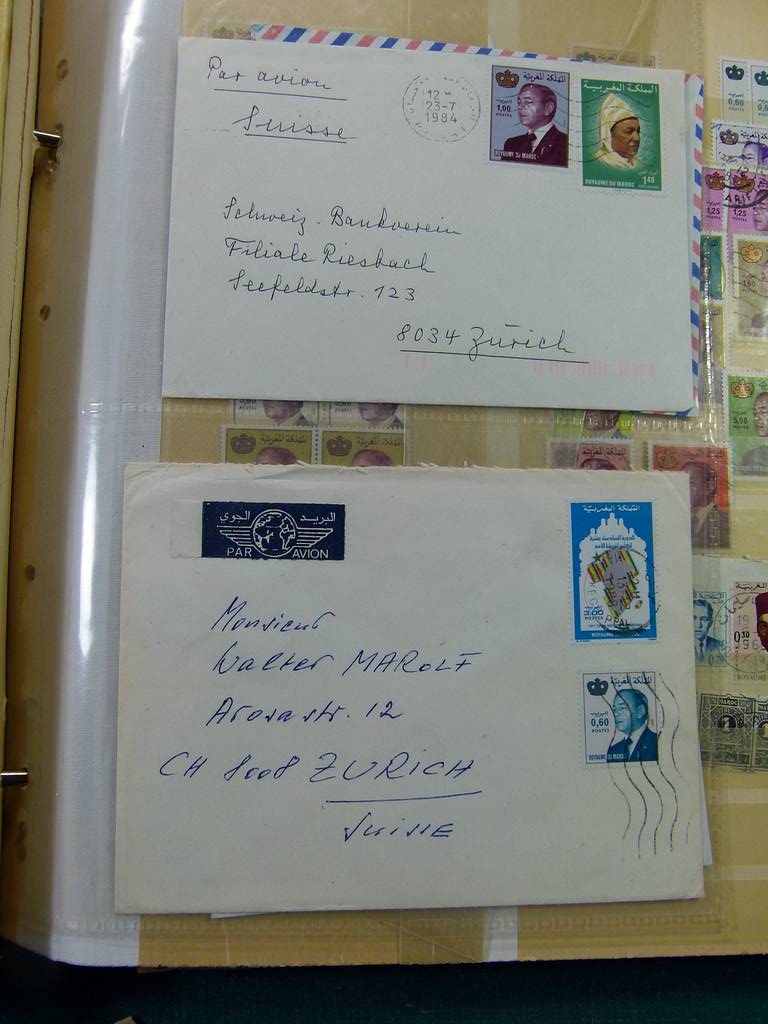 Par avion
Suisse
12
23-7
1984
المملكة المغربية
1,00
POSTES
ROYAUME DU MAROC
المملكة المغربية
ROYAUME DU MAROC
1.40
Schweiz. Bankverein
Filiale Riesbach
Seefeldstr. 123
8034 Zürich
0,60
0,60
1,25
1,25
POSTES
POSTES
1,60
5,00
POSTES
المملكة المغربية
المملكة المغربية
البريد الجوي
PAR AVION
المملكة المغربية
3.00
المملكة المغربية
0,60
POSTES
ROYAUME DU MAROC
Monsieur
Walter MAROLF
Arosastr. 12
CH 8008 ZURICH
SUISSE
0,30
MAROC